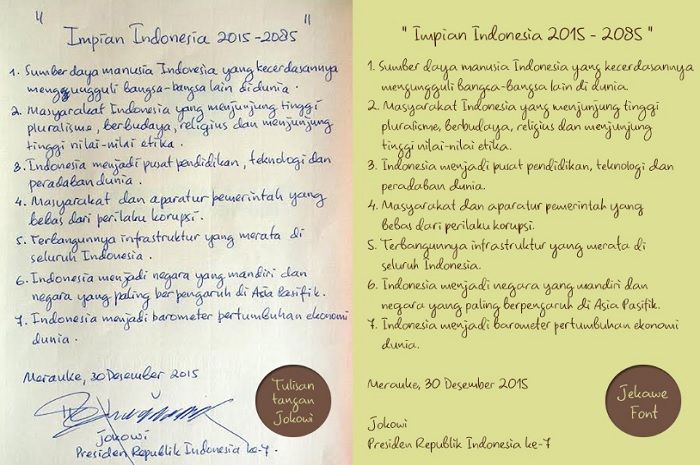 " Impian Indonesia 2015 - 2085 "
1. Sumber daya manusia Indonesia yang kecerdasannya
mengungguli bangsa-bangsa lain di dunia.
2. Masyarakat Indonesia yang menjunjung tinggi
pluralisme, berbudaya, religius dan menjunjung
tinggi nilai-nilai etika.
3. Indonesia menjadi pusat pendidikan, teknologi dan
peradaban dunia.
4. Masyarakat dan aparatur pemerintah yang
bebas dari perilaku korupsi.
5. Terbangunnya infrastruktur yang merata di
seluruh Indonesia.
6. Indonesia menjadi negara yang mandiri dan
negara yang paling berpengaruh di Asia Pasifik.
7. Indonesia menjadi barometer pertumbuhan ekonomi
dunia.
Merauke, 30 Desember 2015
Jokowi
Presiden Republik Indonesia ke-7.
Tulisan
tangan
Jokowi
" Impian Indonesia 2015 - 2085 "
1. Sumber daya manusia Indonesia yang kecerdasannya
mengungguli bangsa-bangsa lain di dunia.
2. Masyarakat Indonesia yang menjunjung tinggi
pluralisme, berbudaya, religius dan menjunjung
tinggi nilai-nilai etika.
3. Indonesia menjadi pusat pendidikan, teknologi dan
peradaban dunia.
4. Masyarakat dan aparatur pemerintah yang
bebas dari perilaku korupsi.
5. Terbangunnya infrastruktur yang merata di
seluruh Indonesia.
6. Indonesia menjadi negara yang mandiri dan
negara yang paling berpengaruh di Asia Pasifik.
7. Indonesia menjadi barometer pertumbuhan ekonomi
dunia.
Merauke, 30 Desember 2015
Jokowi
Presiden Republik Indonesia ke-7
Jekawe
Font